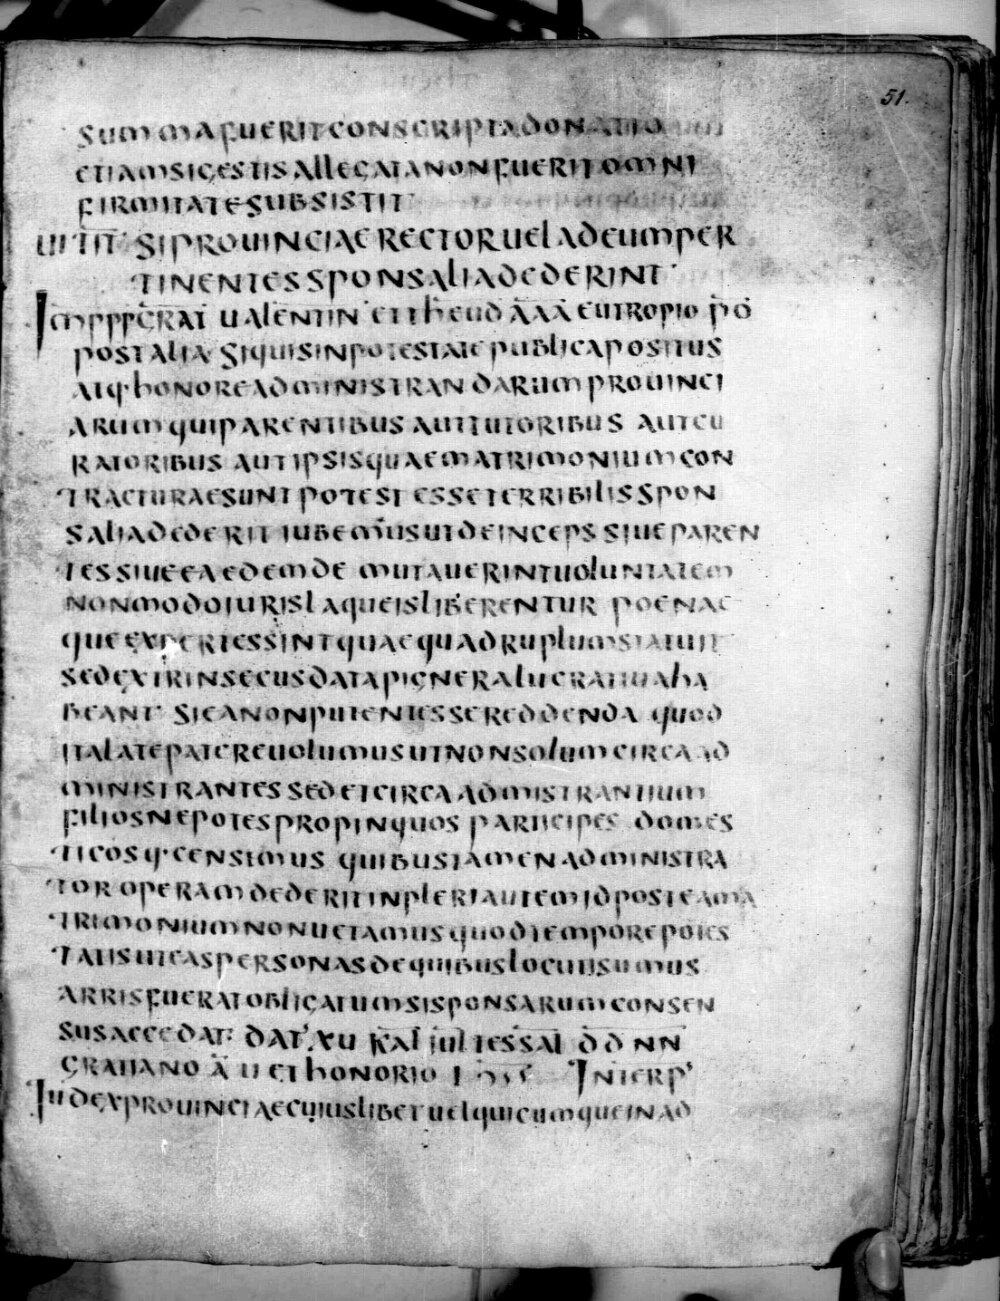 51.
summa fuerit conscripta donatio
etiam si gestis allegata non fuerit omni
firmitate subsistit
VI TIT' SI PROVINCIAE RECTOR VEL AD EUM PER
TINENTES SPONSALIA DEDERINT
Imppp grat valentin et theud aaa eutropio po
post alia si quis in potestate publica positus
atq· honore administrandarum provinci
arum qui parentibus aut tutoribus aut cu
ratoribus aut ipsis quae matrimonium con
tracturae sunt potest esse terribilis spon
salia dederit iubemus ut deinceps sive paren
tes sive eaedem de mutaverint voluntatem
non modo iuris laqueis liberentur poenae
que expertes sint quae quadruplum statuit
sed extrinsecus data pignera lucrativa ha
beant si ea non putent esse reddenda quod
ita late patere volumus ut non solum circa ad
ministrantes sed et circa admistrantium
filios nepotes propinquos participes domes
ticosq· censimus quibus tamen administra
tor operam dederit inpleri autem id postea ma
trimonium non vetamus quod tempore potes
tatis ut eas personas de quibus locuti sumus
arris fuerat obligatum si sponsarum consen
sus accedat dat' xv kal iul tessal d d n n
gratiano a v et theodosio Interp'
Iudex provinciae cuiuslibet vel quicumque in ad